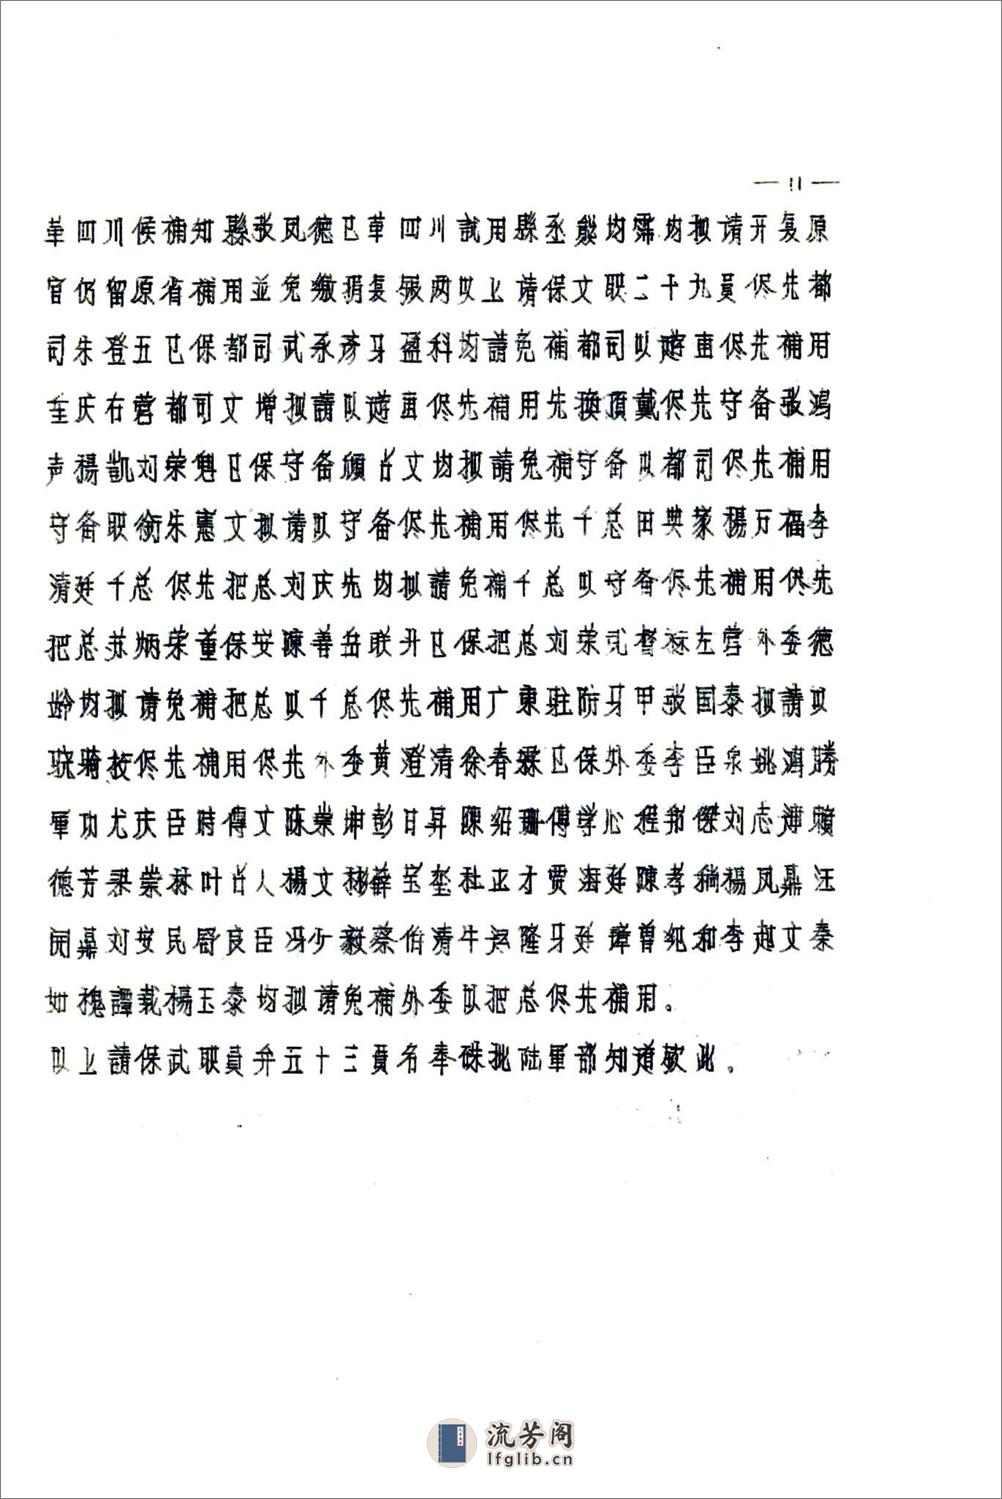 — 11 —
革四川候補知縣張凤德已革四川試用縣丞熊均霈均拟请开复原
官仍留原省補用並免缴捐复银两以上请保文职二十九員侭先都
司朱登五已保都司武承彦牙盈科均請免補都司以遊击侭先補用
重庆右营都司文增拟請以遊击侭先補用先換頂戴侭先守备張鸿
声楊凱刘荣魁已保守备顔占文均拟請免補守备以都司侭先補用
守备职衔朱惠文拟请以守备侭先補用侭先千总田興家楊万福李
清廷千总侭先把总刘庆先均拟請免補千总以守备侭先補用侭先
把总苏炳荣董保安陳善岳联升已保把总刘荣弍督标左营外委德
龄均拟请免補把总以千总侭先補用广東駐防牙甲張国泰拟請以
驍騎校侭先補用侭先外委黄澄清徐春霖已保外委李臣泉姚鴻勝
軍功尤庆臣時傳文陈荣坤彭甘昇陳绍珊傅学心程邦傑刘志溥賴
德芳梁崇林叶占人楊文彬薛宝奎杜正才贾海廷陳孝楊凤鼎汪
開嘉刘安民舒良臣冯少毅蔡伯清牛兴隆牙廷璋曾纪和李超文秦
如槐譚載楊玉泰均拟请免補外委以把总侭先補用。
以上請保武职員弁五十三員名奉硃批陆軍部知道欽此。
流芳阁
lfglib.cn